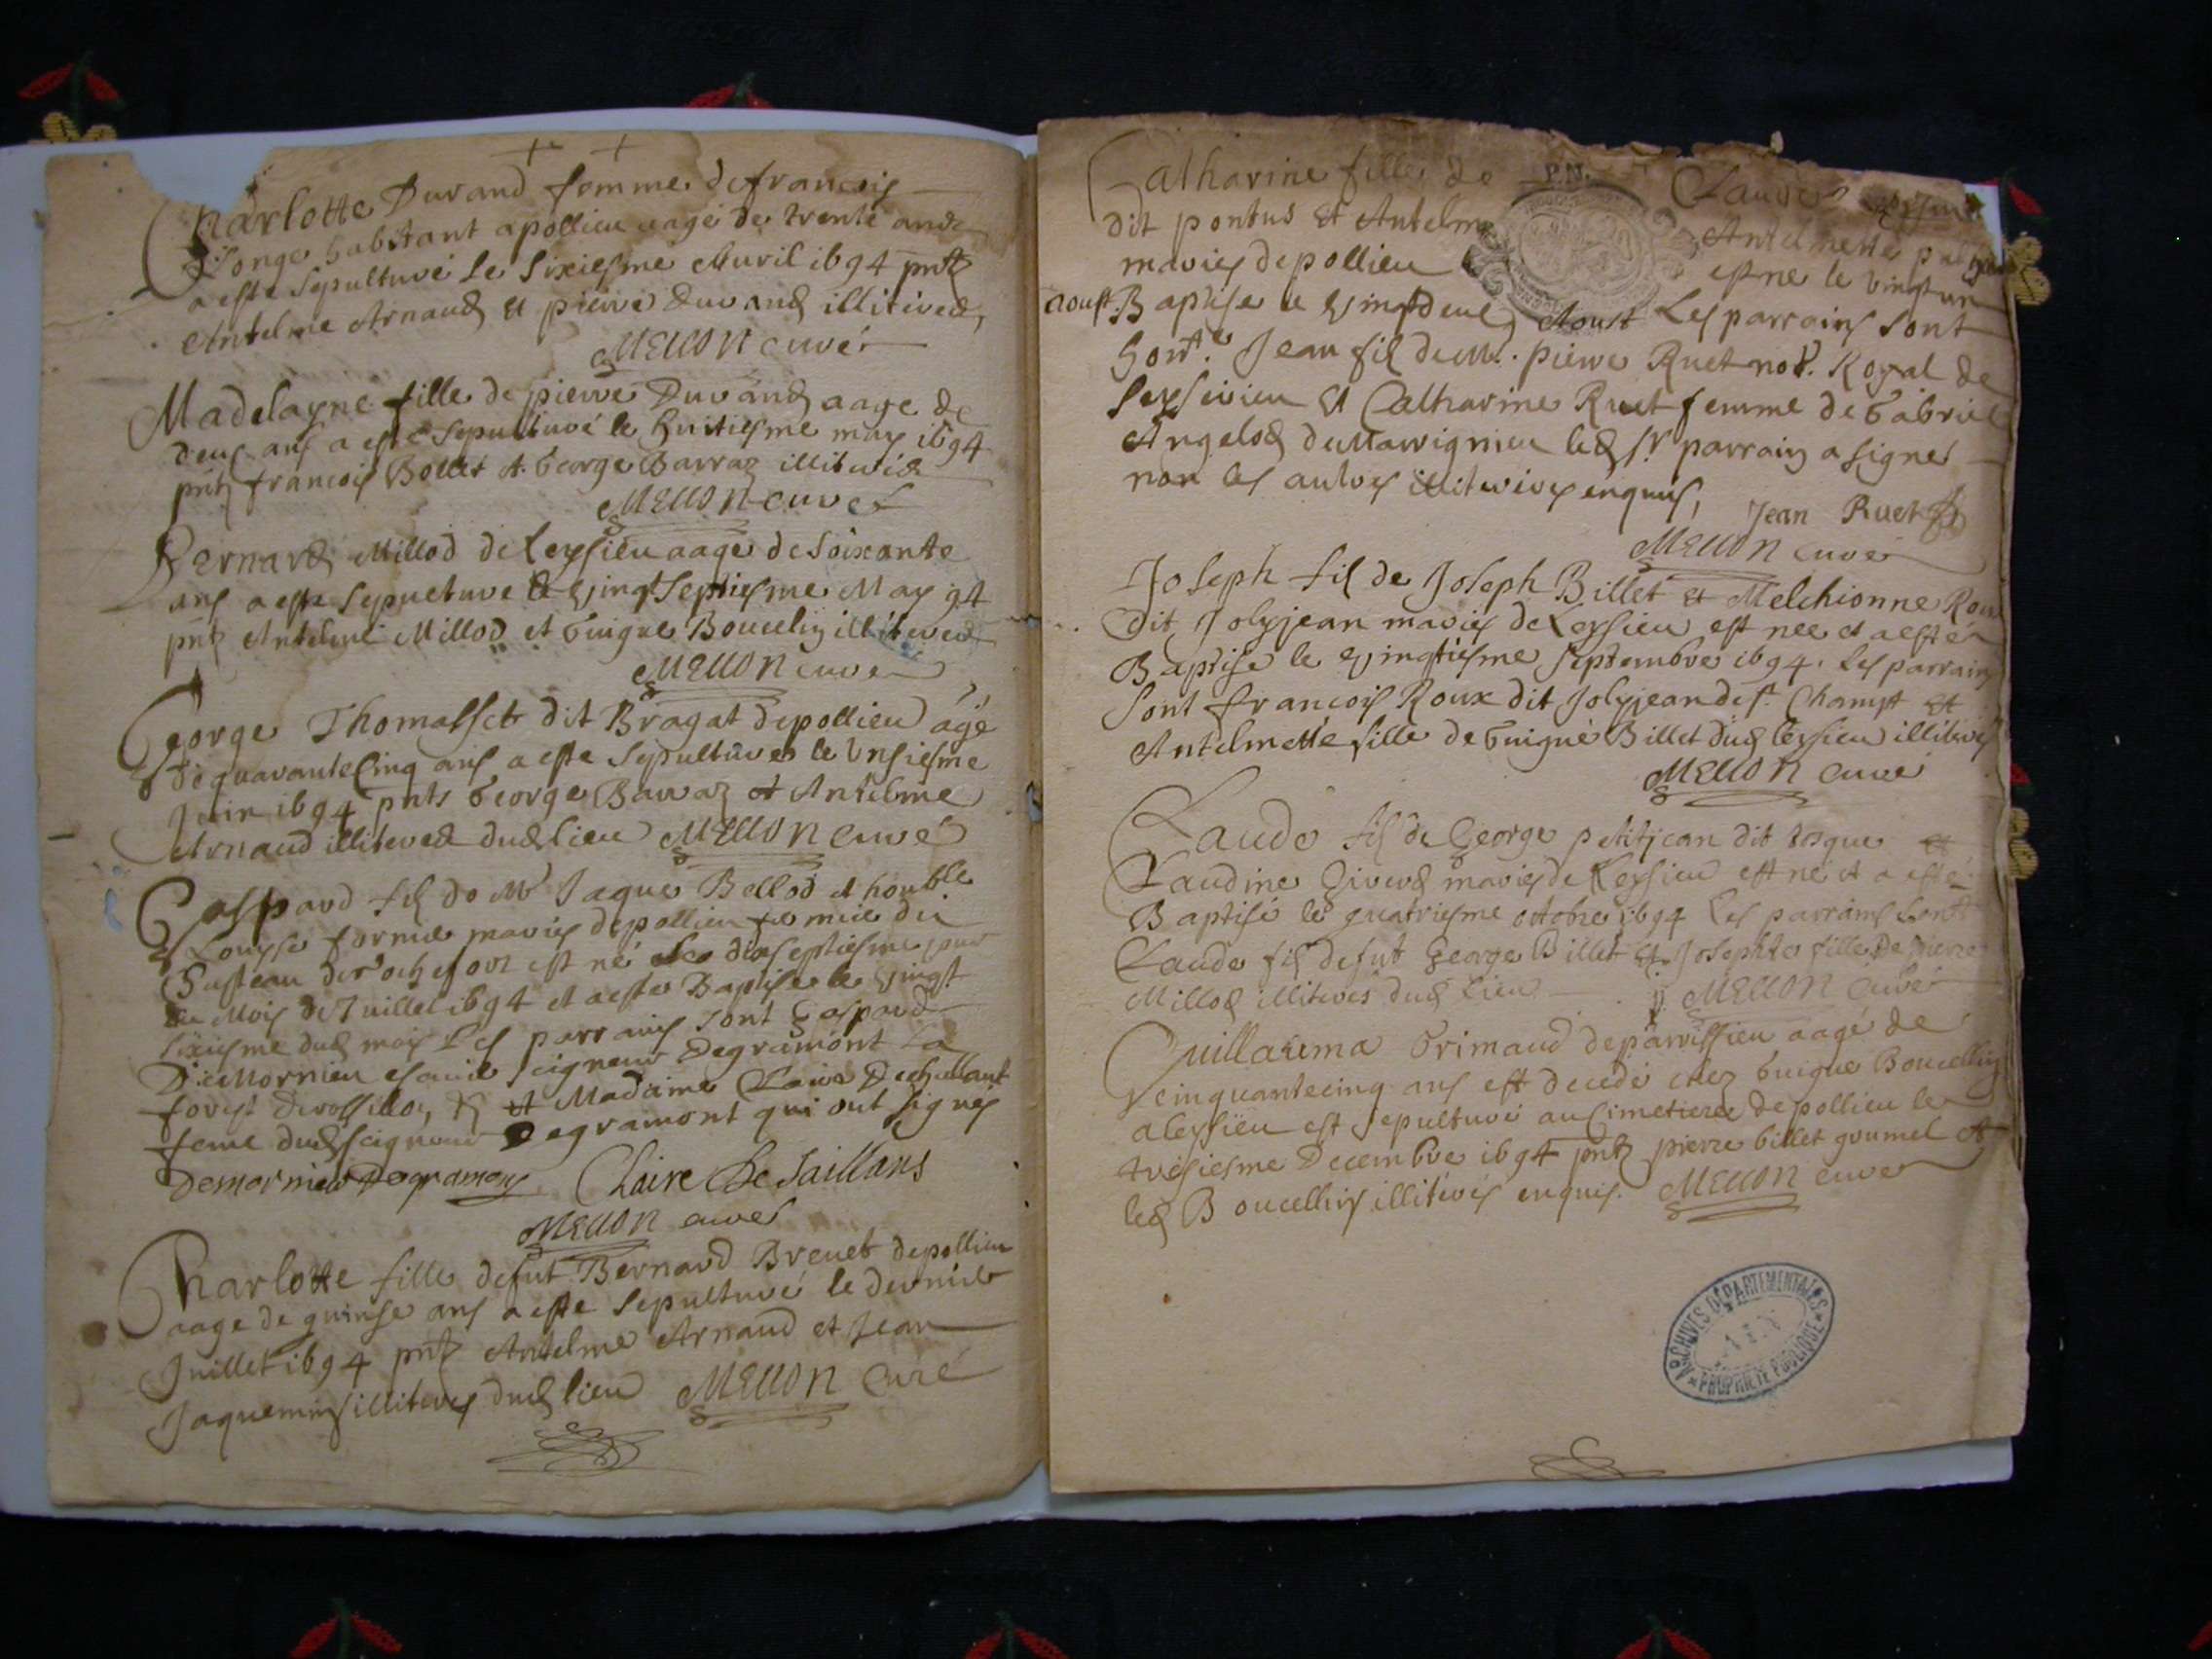 Charlotte Durand femme de francois
Songe habitant apollieu aagé de trente ans
a esté sepulturé Le sixiesme Auril 1694 pnts
Antelme Arnaud et pierre Durand illiterés,
Mellon curé
Madelayne fille de pierre Durand aage de
deux ans a esté sepulturé le huitiesme may 1694
pnts francois Bollet et George Barraz illiterés
Mellon curé
Bernard Millod de Leyssieu aage de soixante
ans a esté sepulturé le vingtseptiesme May 94
pnts Antelme Millod et Guigue Boucelin illiterés
Mellon curé
George Thomasset dit Bragat depollieu agé
de quarantecinq ans a esté sepulturé le unsiesme
Juin 1694 pnts George Barraz et Antelme
Arnaud illiterés dud lieu Mellon curé
Gaspard fil de Mr Jaque Bellod et honble
Louyse fornier mariés depollieu fermier du
Chasteau de rochefort est né le dixseptiesme jour
du Mois de Juillet 1694 et a esté Baptisé le vingt
sixiesme dud mois Les parrains sont Gaspard
De Mornieu escuier seigneur Degramont La
forest de rossillon et Madame Claire Dechaillant
feme dud seigneur Degramont qui ont signés
Demornieu Degramont Claire De Saillans
Mellon curé
Charlotte fille defut Bernard Brevet depollieu
aage de quinse ans a esté sepulturé le dernier
Juillet 1694 pnts Antelme Arnaud et Jean
Jaquemin illiterés dud lieu Mellon Curé
Catharine fille de Claude
dit pontus et Antelme Antelmette
mariés depollieu est né le vingt un
aoust. Baptisé le vingtdeux Aoust Les parrains sont
hont. Jean fil de M. pierre Ruet not. Royal de
Seyssirieu et Catharine Ruet femme de Gabriel
Angelod de Marrignieu led sr. parrain a signé
non les autres illiterés enquis, Jean Ruet
Mellon curé
Joseph fil de Joseph Billet et Melchionne Roux
dit Jolyjean mariés de Leyssieu est née et a esté
Baptisé le vingtiesme septembre 1694. Les parrains
sont francois Roux dit Jolyjean de st. Champt et
Antelmette fille de Guigue Billet dud leyssieu illiterés
Mellon curé
Claude fil de George petitjean dit tosque et
Claudine Giverd mariés de Leyssieu est né et a esté
Baptisé le quatriesme octobre 1694 Les parrains sont
Claude fil defut George Billet et Josephte fille de pierre
Millod illiterés dud Lieu Mellon curé
Guillauma Grimaud deparvissieu aagé de
cinquantecinq ans est decedé chez Guigue Boucellin
a leyssieu est sepulturé au Cimetiere depollieu le
tresiesme Decembre 1694 pnts pierre billet goumel et
led Boucellin illiterés enquis. Mellon curé
ARCHIVES DÉPARTEMENTALES
AIN
PROPRIÉTÉ PUBLIQUE